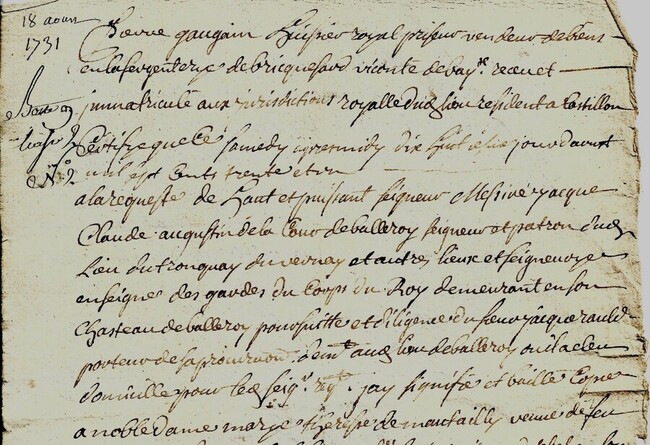 18 aoust
1731
Pierre gaugain huissier royal priseur vendeur de biens
en la sergenterye de bricquesard viconté de bayx receu et
immatriculé aux jurisdictions royalle dud lieu resident a Castillon
Certifie que ce samedy apres midy dix huit jour daoust
mil sept cents trente et un
a la requeste de haut et puissant seigneur Messire jacque
Claude augustin de la Cour de balleroy seigneur et patron dud
Lieu du tronquay du vernay et autres lieux et seigneuryes
enseigne des gardes du Corps du Roy demeurant en son
Chasteau de balleroy poursuitte et diligence du sieur jacque
porteur de sa procuraon demt aud lieu de balleroy ou il a eleu
domicille pour led seigr reqt jay signifié et baillé Copie
a noble dame marye therese de mautailly veuve de feu
N° 2